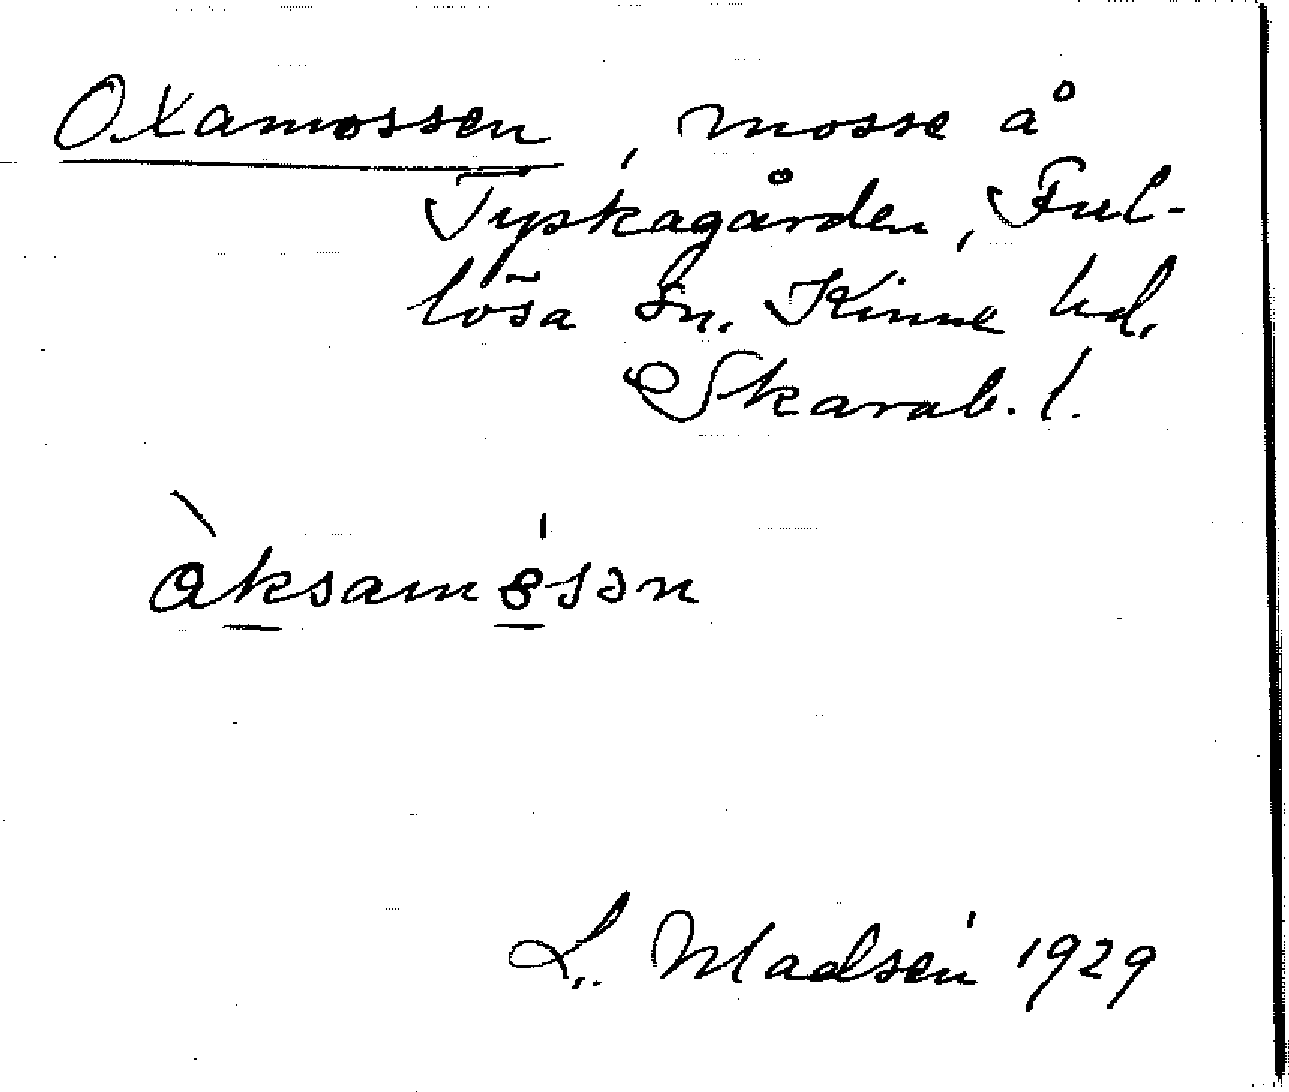 Oxamossen, mosse å
Tyskagården, Ful-
lösa sn. Kinne hd.
Skarab. l.
òksamósən
L. Madsén 1929